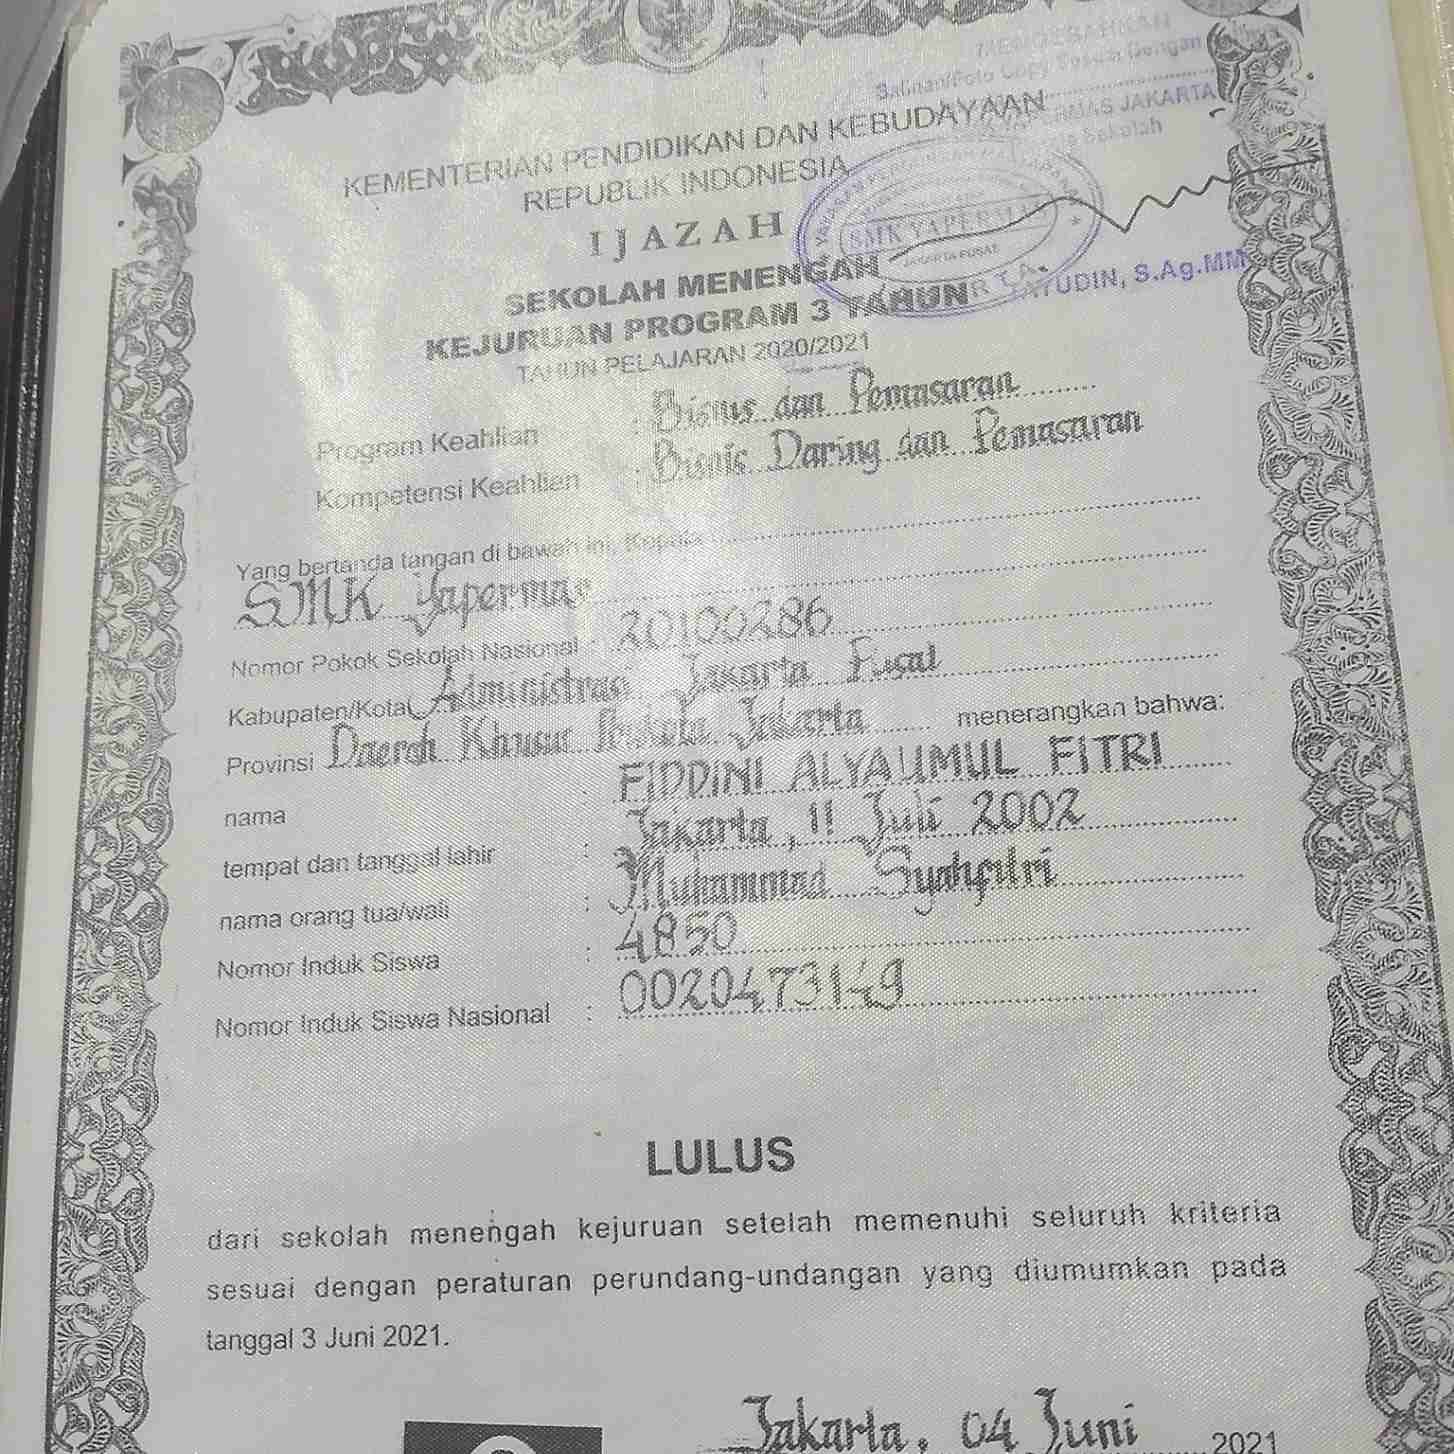 MENGESAHKAN
Salinan/Foto Copy Sesuai Dengan
JAKARTA
Sekolah
KEMENTERIAN PENDIDIKAN DAN KEBUDAYAAN
REPUBLIK INDONESIA
IJAZAH
SMK YAPERMAS
JAKARTA PUSAT
SEKOLAH MENENGAH
S.Ag.MM
KEJURUAN PROGRAM 3 TAHUN
TAHUN PELAJARAN 2020/2021
Program Keahlian : Bisnis dan Pemasaran
Kompetensi Keahlian : Bisnis Daring dan Pemasaran
Yang bertanda tangan di bawah ini, Kepala
SMK Yapermas
Nomor Pokok Sekolah Nasional : 20100286
Kabupaten/Kota Administrasi Jakarta Pusat
Provinsi Daerah Khusus Ibukota Jakarta menerangkan bahwa:
nama : FIDDINI ALYAUMUL FITRI
tempat dan tanggal lahir : Jakarta, 11 Juli 2002
nama orang tua/wali : Muhammad Syahfitri
Nomor Induk Siswa : 4850
Nomor Induk Siswa Nasional : 0020473149
LULUS
dari sekolah menengah kejuruan setelah memenuhi seluruh kriteria
sesuai dengan peraturan perundang-undangan yang diumumkan pada
tanggal 3 Juni 2021.
Jakarta, 04 Juni 2021